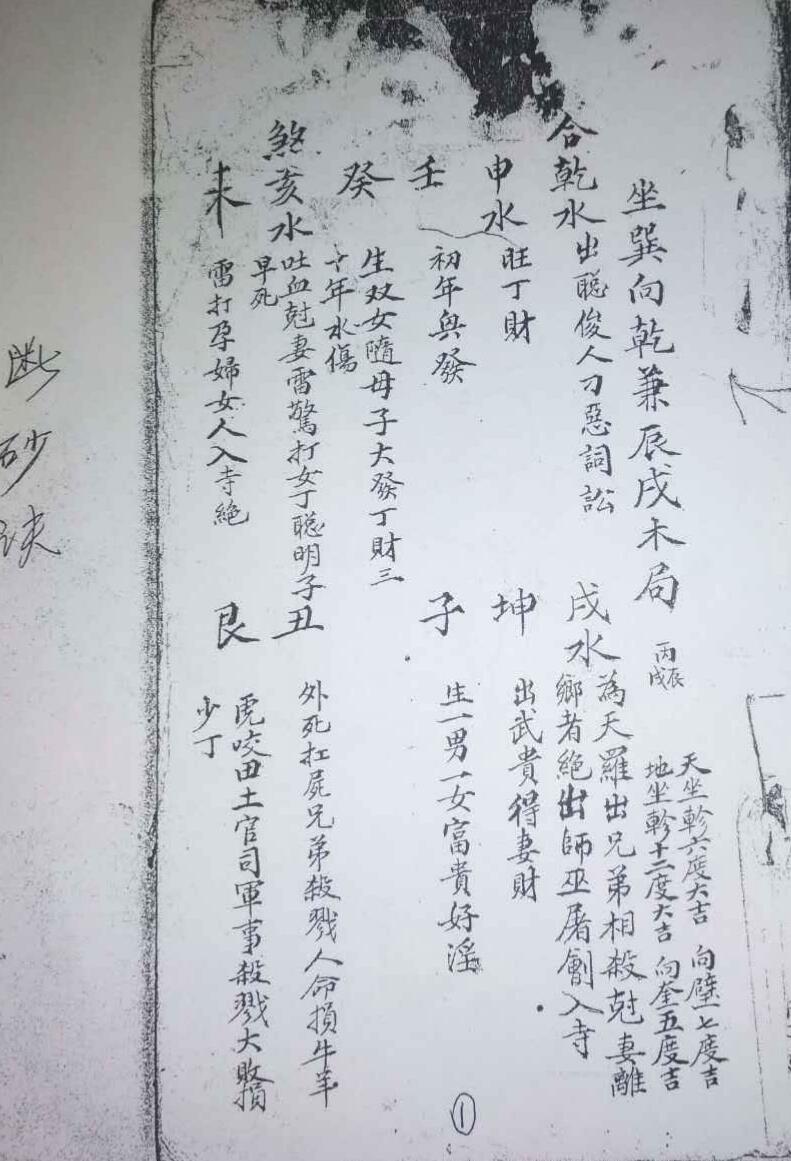 坐巽向乾兼辰戌木局
丙辰
丙戌
天坐軫六度大吉 向壁七度吉
地坐軫十二度大吉 向奎五度吉
合乾水 出聡俊人刁惡詞訟
戌水 為天羅出兄弟相殺尅妻離
鄉者絕出師巫屠劊入寺
申水 旺丁財
坤 出武貴得妻財
壬 初年興發
子 生一男一女富貴好淫
癸 生双女隨母子大發丁財三
十年水傷
煞亥水 吐血尅妻雷驚打女丁聡明子
早死
丑 外死扛屍兄弟殺戮人命損牛羊
未 雷打孕婦女人入寺絕
艮 虎咬田土官司軍事殺戮大敗損
少丁
①
断砂訣